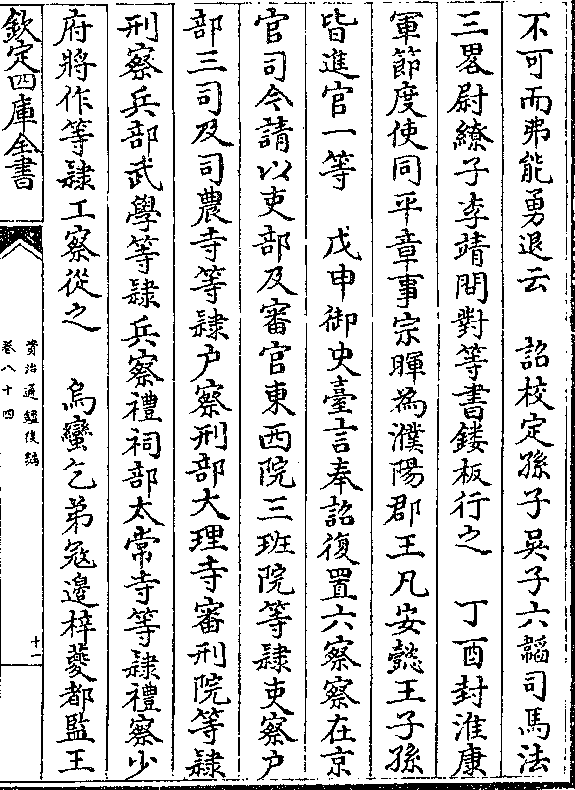 不可而弗能勇退云　詔校定孫子吳子六韜司馬法
三畧尉繚子李靖問對等書鏤板行之　丁酉封淮康
軍節度使同平章事宗暉為濮陽郡王凡安懿王子孫
皆進官一等　戊申御史臺言奉詔復置六察察在京
官司今請以吏部及審官東西院三班院等隸吏察户
部三司及司農寺等隸户察刑部大理寺審刑院等隸
刑察兵部武學等隸兵察禮祠部太常寺等隸禮察少
府將作等隸工察從之　烏蠻乞弟寇邊梓夔都監王
欽定四庫全書
資治通鑑後編
卷八十四
十一